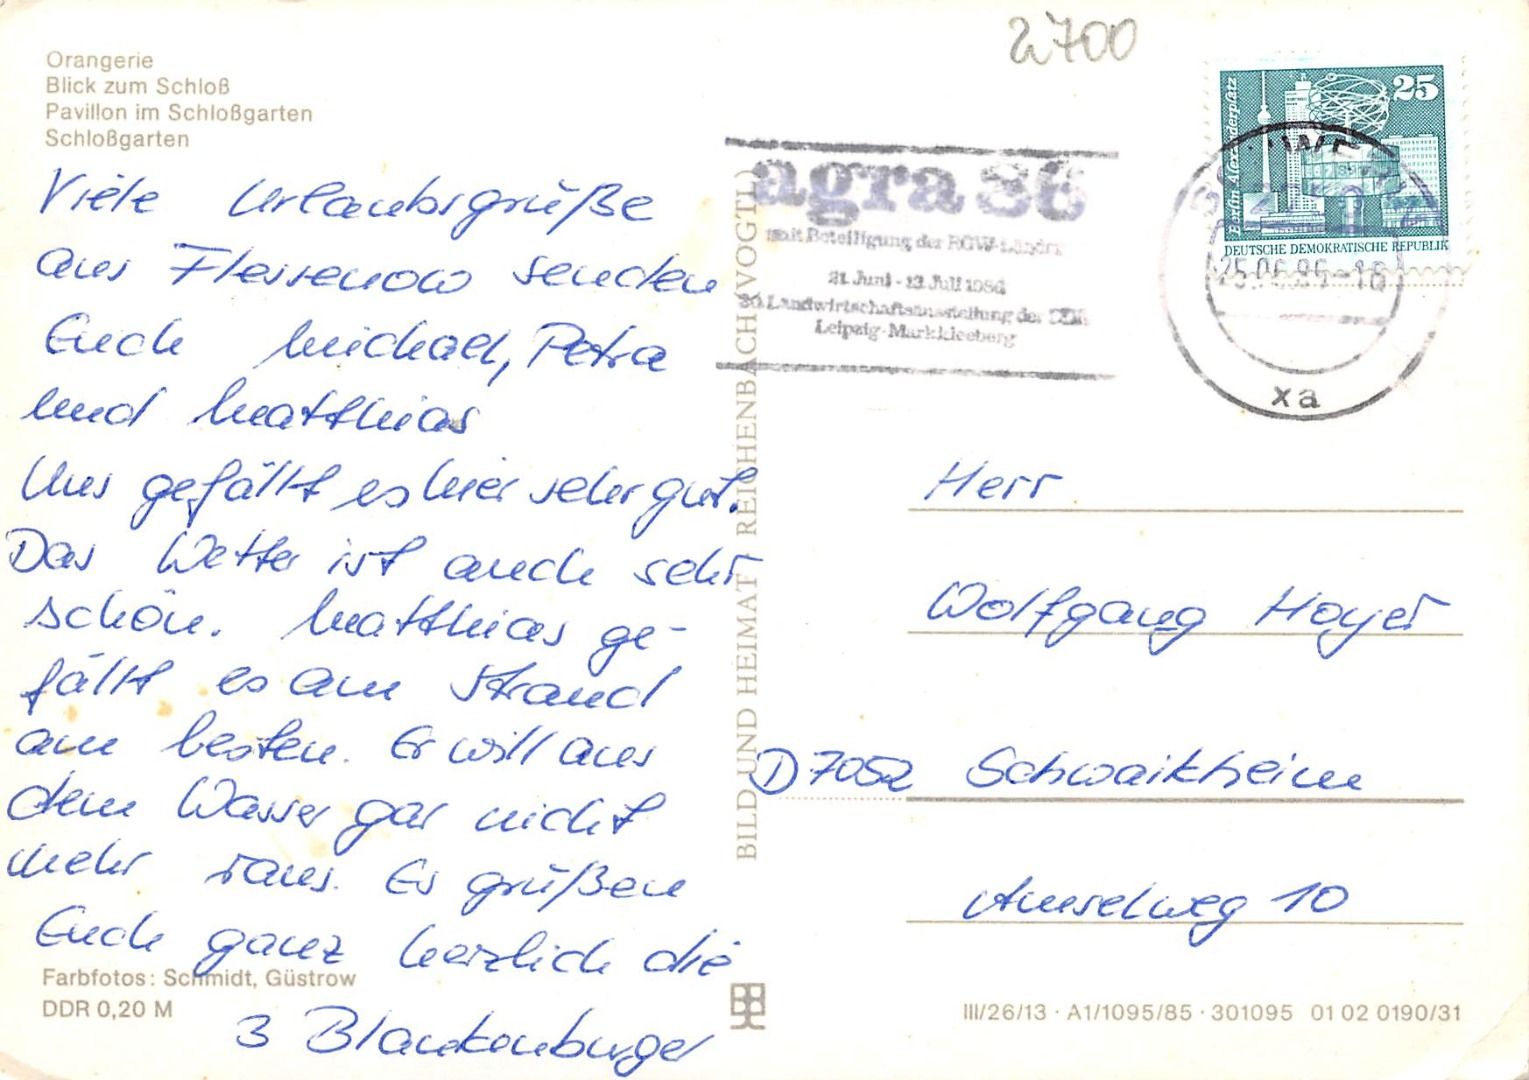 2700
Orangerie
Blick zum Schloß
Pavillon im Schloßgarten
Schloßgarten
Viele Urlaubsgrüße
aus Flessenow senden
Euch Michael, Petra
und Matthias
Uns gefällt es hier sehr gut.
Das Wetter ist auch sehr
schön. Matthias ge-
fällt es am Strand
am besten. Er will aus
dem Wasser gar nicht
mehr raus. Es grüßen
Euch ganz herzlich die
3 Blankenburger
Farbfotos: Schmidt, Güstrow
DDR 0,20 M
BILD UND HEIMAT REICHENBACH (VOGTL)
agra 86
mit Beteiligung der RGW-Länder
21. Juni - 13. Juli 1986
20. Landwirtschaftsausstellung der DDR
Leipzig-Markkleeberg
25
Berlin-Alexanderplatz
DEUTSCHE DEMOKRATISCHE REPUBLIK
25.06.86-16
xa
Herr
Wolfgang Hoyer
D 7052 Schwaikheim
Amselweg 10
III/26/13 · A1/1095/85 · 301095 01 02 0190/31